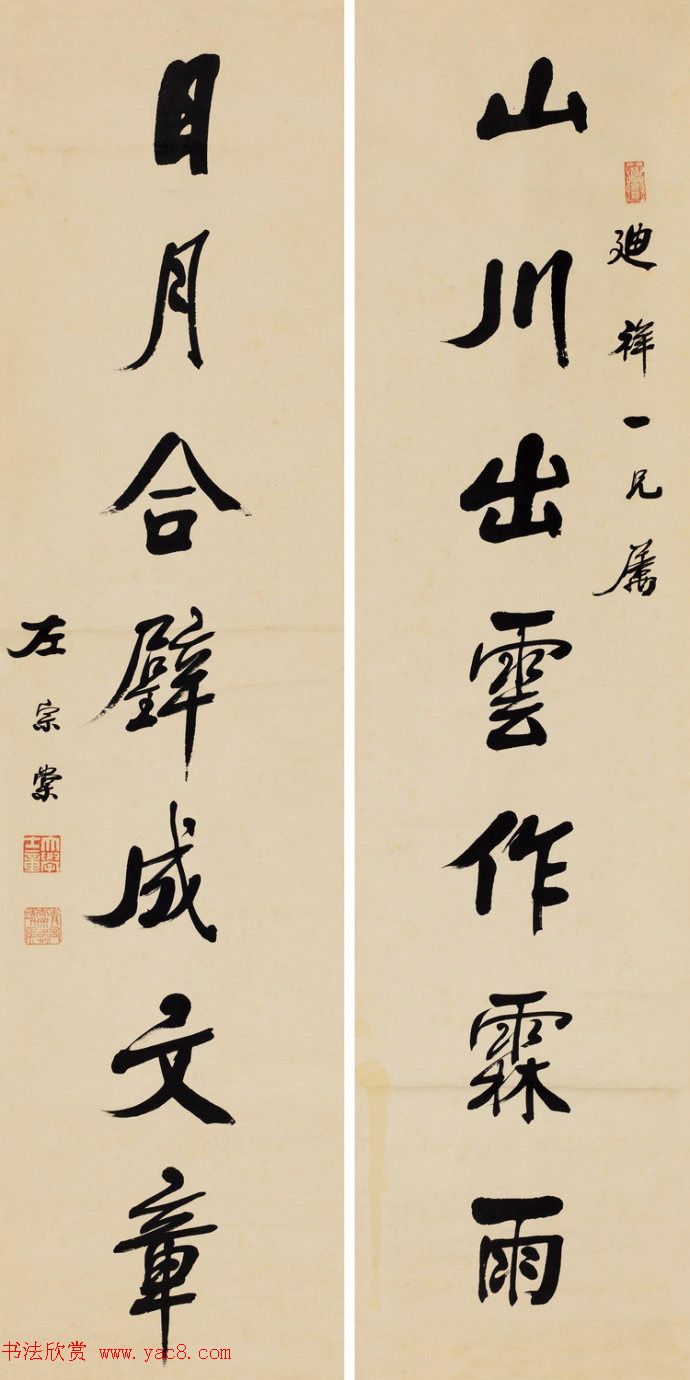 迪祥一兄属
山川出雲作霖雨
日月合璧成文章
左宗棠
书法欣赏 www.yac8.com